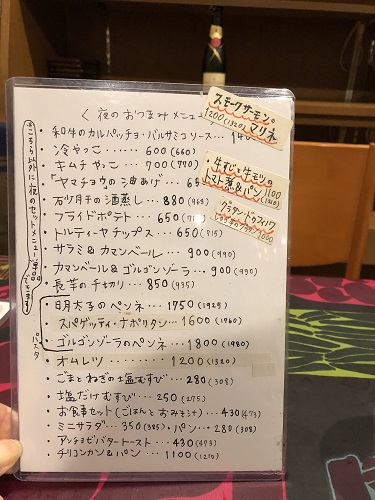 < 夜のおつまみメニュー
スモークサーモンの
1200(1320) マリネ
・和牛のカルパッチョ・バルサミコソース…
・冷やっこ……600(660)
・キムチやっこ……700(770)
・牛すじと牛モツの
トマト煮&パン 1100
・「ヤマチョウの油あげ」…
・砂肝の酒蒸し…880(968)
グラタン・ドフィノワ
1000
・フライドポテト…650
・トルティーヤチップス…650(715)
・サラミ&カマンベール…900(990)
・カマンベール&ゴルゴンゾーラ…900(990)
・長芋のチヂミ…850(935)
・明太子のペンネ…1750(1925)
・スパゲッティ・ナポリタン…1600(1760)
・ゴルゴンゾーラのペンネ…1800(1980)
パスタ
・オムレツ………1200(1320)
・ごまとねぎの塩むすび…280(308)
・塩だけむすび…250(275)
・お食事セット(ごはんとおみそ汁)…430(473)
・ミニサラダ…350(385)・パン…280(308)
・アンチョビバタートースト…430(473)
・チリコンカン&パン…1100(1210)